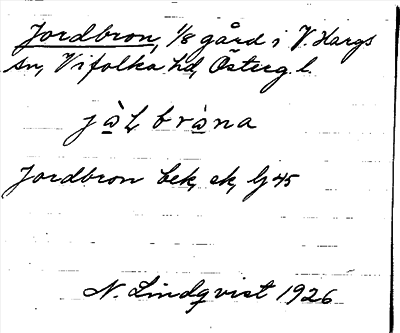 Jordbron, 1/8 gård i V. Hargs
sn, Vifolka hd, Österg. l.
bråna
Jordbron bek, sk, lj 45
N. Lindqvist 1926